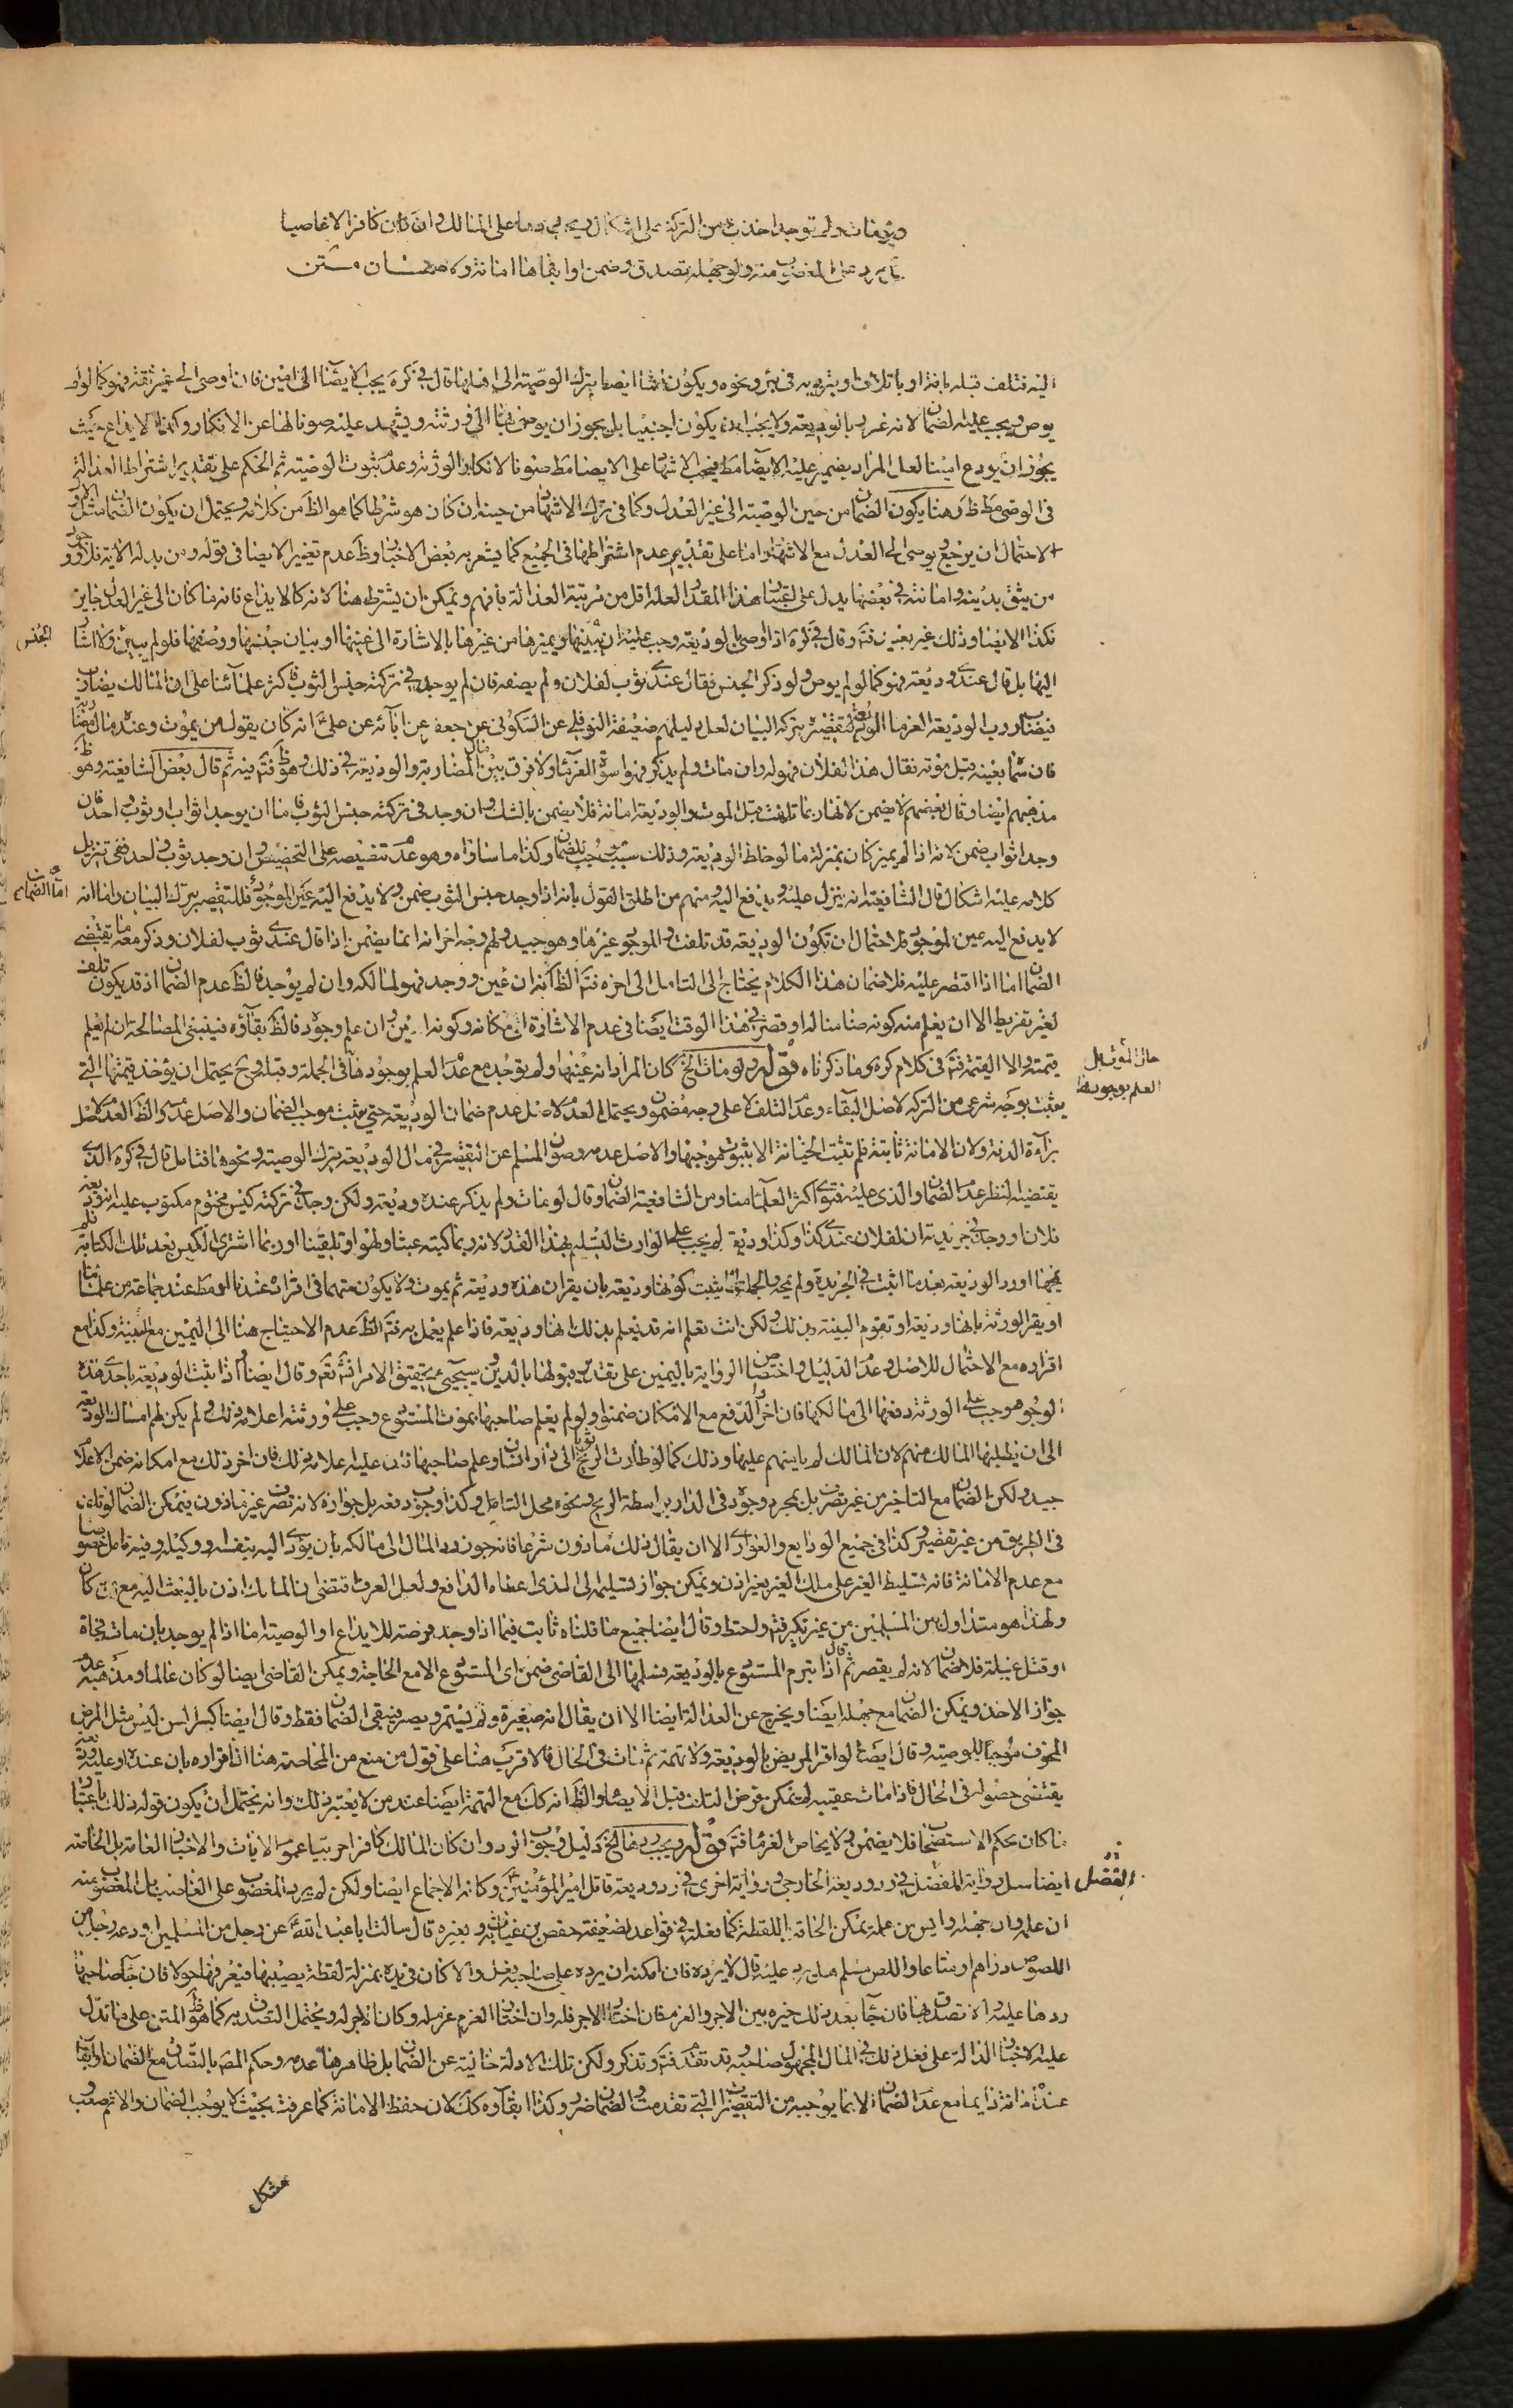 ولو مات ولم توجد اخذت من التركة على اشكال ويجب ردها على المالك وان كان كافرا لا غاصبا
بل يرد على المغصوب منه ولو جهله تصدق وضمن او ابقاها امانة ولا ضمان متن
اليه فتلف قبله بانه او باتلاف او بترديه في بئر ونحوه ويكون ايضا بترك الوصية الى اهلها قال في كرة يجب الايصاء الى امين فان اوصى الى غير ثقة فهو كما لو لم
يوص ويجب عليه الضمان لانه غرر بالوديعة ولا يجب ان يكون اجنبيا بل يجوز ان يوصى بها الى ورثته ويشهد عليه صونا لها عن الانكار وكذا الايداع حيث
يجوز ان يودع امينا لعل المراد بضمير عليه الايصاء مط فيجب الاشهاد على الايصاء مط صونا لانكار الورثة وعدم ثبوت الوصية ثم الحكم على تقدير اشتراط العدالة
في الوصى مط ظ وهنا يكون الضمان من حين الوصية الى غير العدل وكذا في ترك الاشهاد من حينه ان كان هو شرطا كما هو الظ من كلامه ويحتمل ان يكون الضمان
لاحتمال ان يرجع ويوصى الى العدل مع الاشهاد واما على تقدير عدم اشتراطها في الجميع كما يشعر به بعض الاخبار وظ عدم تغيير الايصاء في قوله ومن بدله الاية فلا
من يثق بدينه وامانته في بعضها يدل على اعتبار هذا المقدار لعله اقل من مرتبة العدالة فافهم ويمكن ان يشترط هنا لانه كالايداع فانه ما كان الى غير العدل جايز
فكذا الايصاء وذلك غير بعيد فتم وقال في كرة اذا اوصى بالوديعة وجب عليه ان يبينها ويميزها من غيرها بالاشارة الى عينها او بيان جنسها ووصفها فلو لم يبين الجنس ولا اشار
اليها بل قال عندى وديعة فهو كما لو لم يوص ولو ذكر الجنس فقال عندى ثوب لفلان ولم يصفه فان لم يوجد في تركته جنس الثوب فاكثر علمائنا على ان المالك يضارب
رب الوديعة الغرماء لتقصيره بترك البيان لعل دليلهم ضعيفة النوفلى عن السكونى عن جعفر عن ابائه عن على انه كان يقول من يموت وعنده مال مضاربة
قال ان سماه بعينه قبل موته فقال هذا لفلان فهو له وان مات ولم يذكر فهو اسوة الغرماء ولا فرق بين المضاربة والوديعة في ذلك وهو ظ فتم فيه ثم قال بعض الشافعية وهو ظ
مذهبهم ايضا وقال بعضهم لا يضمن لانها ربما تلفت قبل الموت والوديعة امانة فلا يضمن بالشك وان وجد في تركته جنس الثوب فاما ان يوجد اثواب او ثوب واحد فان
وجد اثواب ضمن لانه اذا لم يميز كان بمنزلة ما لو خلط الوديعة وذلك سبب موجب للضمان وكذا ما ساواه وهو عدم تنصيصه على التخصيص وان وجد ثوب واحد ففى تنزيل
كلامه عليه اشكال قال الشافعية انه ينزل عليه ويدفع اليه ومنهم من اطلق القول بانه اذا وجد جنس الثوب ضمن ولا يدفع اليه عين الموجود اما الضمان فللتقصير بترك البيان واما انه
لا يدفع اليه عين الموجود فلاحتمال ان تكون الوديعة قد تلفت والموجود غيرها وهو جيد ولهم وجه اخر انه انما يضمن اذا قال عندى ثوب لفلان وذكر معه ما يقتضى
الضمان اما اذا اقتصر عليه فلا ضمان هذا الكلام يحتاج الى التامل الى اخره فتم الظ انه ان عين ووجد فهو لمالكه وان لم يوجد فالظ عدم الضمان اذ قد يكون تلف
بغير تفريط الا ان يعلم منه كونه ضامنا له او قصر في هذا الوقت ايضا في عدم الاشارة الى مكانه وكونه وان علم وجوده فالظ بقاؤه فينبغى المصالحة ان لم يعلم
قيمته والا القيمة فتم في كلام كرة وما ذكرناه قوله ولو مات الخ كان المراد انه عينها ولم توجد مع عدم العلم بوجودها في الجملة وقبله وح يحتمل ان يؤخذ قيمتها التى
حال الموت بل العلم بوجودها
يعثبت بوجه شرعى من التركة لاصل البقاء وعدم التلف لا على وجه مضمون ويحتمل العدم لاصل عدم ضمان الوديعة حتى يثبت موجب الضمان والاصل عدمه والظ العدم لاصل
براءة الذمة ولان الامانة ثابتة فلم تثبت الخيانة الا بثبوت موجبها والاصل عدمه وصون المسلم عن التقصير في مال الوديعة بترك الوصية ونحوها فتامل قال في كرة الذى
يقتضيه النظر عدم الضمان والذى عليه فتوى اكثر العلماء منا ومن الشافعية الضمان وقال لو مات ولم يذكر عنده وديعة ولكن وجد في تركته كيس مختوم مكتوب عليه انه وديعة
فلان او وجد في جريدته ان لفلان عندى كذا وكذا وديعة لم يجب على الوارث التسليم بهذا القدر لانه ربما كتبه عبثا ولهوا او تلقينا او ربما اشترى الكيس بعد تلك الكتابة فلم
يمحها او رد الوديعة بعدما اثبت في الجريدة ولم يمحه وبالجملة انما يثبت كونها وديعة بان يقر ان هذه وديعة ثم يموت ولا يكون متهما في اقراره عندنا او مط عند جماعة من علمائنا
او يقر الورثة بانها وديعة او تقوم البينة بذلك ولكن انت تعلم انه قد يعلم بذلك انها وديعة فاذا علم يعمل به فتم الظ عدم الاحتياج هنا الى اليمين مع البينة وكذا مع
اقراره مع الاحتمال للاصل وعدم الدليل واختصاص الرواية باليمين على تقدير قبولها بالدين وسيجيء تحقيق الامر انشاء تع وقال ايضا اذا ثبت الوديعة باحدى هذه
الوجوه وجب على الورثة دفعها الى مالكها فان اخر الدفع مع الامكان ضمنوا ولو لم يعلم صاحبها بموت المستودع وجب على ورثته اعلامه ذلك ولم يكن لهم امساك الوديعة
الى ان يطلبها المالك منهم لان المالك لم ياتمنهم عليها وذلك كما لو طارت الريح ثوبا الى دار انسان وعلم صاحبها فان عليه اعلامه ذلك فان اخر ذلك مع امكانه ضمن الاعلام
جيد ولكن الضمان مع التاخير من غير تصرف بل بمجرد وجوده في الدار بواسطة الريح ونحوه محل التامل وكذا وجوب دفعه بل جوازه لانه تصرف غير ماذون فيمكن الضمان لو تلف
في الطريق من غير تقصير وكذا في جميع الودايع والعوارى الا ان يقال ذلك ماذون شرعا فانه يجوز رد المال الى مالكه بان يؤدى اليه بنفسه ووكيله وفيه تامل خصوصا
مع عدم الامانة فانه تسليط الغير على ملك الغير بغير اذن ويمكن جواز تسليمه الى الذى اعطاه الدافع ولعل العرف يقتضى ان المالك اذن بالبعث اليه مع من كان
ولهذا هو متداول بين المسلمين من غير نكير فتم واحتط وقال ايضا جميع ما قلناه ثابت فيما اذا وجد فرصة للايداع او الوصية اما اذا لم يوجد بان مات فجاة
او قتل غيلة فلا ضمان لانه لم يقصر ثم قال اذا تبرم المستودع بالوديعة فسلمها الى القاضى ضمن اى المستودع الا مع الحاجة ويمكن القاضى ايضا لو كان عالما ومذهبه عدم
جواز الاخذ ويمكن الضمان مع جهله ايضا ويخرج عن العدالة ايضا الا ان يقال انه صغيرة ولم يستمر ويصر فيبقى الضمان فقط وقال ايضا كبر السن ليس مثل المرض
المخوف موجبا للوصية وقال ايضا لو اقر المريض بالوديعة ولا تهمة ثم مات في الحال فالاقرب هنا على قول من منع من المحاصة هنا اذا اقراره بان عنده او عليه وديعة
يقتضى حصوله في الحال فاذا مات عقيبه لم يمكن فرض التلف قبل الايصاء والظ انه كك مع التهمة ايضا عند من لا يعتبر ذلك وانه يحتمل ان يكون قوله ذلك باعتبار
ما كان بحكم الاستصحاب فلا يضمن ولا يحاص الغرماء فتم قوله ويجب ردها الخ دليل وجوب الرد وان كان المالك كافرا حربيا عموم الايات والاخبار العامة بل الخاصة
ايضا مثل رواية الفضل في رد وديعة الخارجى ورواية اخرى في رد وديعة قاتل امير المؤمنين وكانه الاجماع ايضا ولكن لم يرد المغصوب على الغاصب بل المغصوب منه
ان علم وان جهله وايس من علمه يمكن الحاقه باللقطة كما فعله في قواعد لضعيفة حفص بن غياث وبغيره قال سالت ابا عبد الله عن رجل من المسلمين اودعه رجل من
اللصوص دراهم او متاعا واللص مسلم هل يرد عليه قال لا يرده فان امكنه ان يرده على صاحبه فعل والا كان في يده بمنزلة لقطة يصيبها فيعرفها حولا فان جاء صاحبها
ردها عليه والا تصدق بها فان جاء بعد ذلك خيره بين الاجر والغرم فان اختار الاجر فله وان اختار الغرم غرم له وكان الاجر له ويحتمل التصدق به كما هو ظ المتن على ما تدل
عليه الاخبار الدالة على فعل ذلك في المال المجهول صاحبه قد تقدمت فتم وتذكر ولكن تلك الادلة خالية عن الضمان بل ظاهرها عدمه وحكم المص بالتصدق مع الضمان او ابقاء
عنده امانة دايما مع عدم الضمان الا بما يوجبه من التقصيرات التى تقدمت والضمان ضرر وكذا ابقاؤه كك لان حفظ الامانة كما عرفت بحيث لا يوجب الضمان والاثم صعب
مشكل